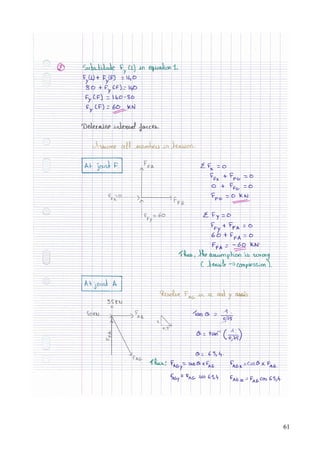 ② Substitute Fy(L) in equation 1.
Fy(L) + Fy(F) = 140
80 + Fy(F) = 140
Fy(F) = 140 - 80
Fy(F) = 60 kN
Determine internal forces.
Assume all members in tension
At joint F
F_FA
F_Fx=0
F_FG
F_Fy = 60
Σ Fx = 0
F_Fx + F_FG = 0
0 + F_FG = 0
F_FG = 0 kN
Σ Fy = 0
F_Fy + F_FA = 0
60 + F_FA = 0
F_FA = -60 kN
Thus, the assumption is wrong
(tensile → compression).
At joint A
Resolve F_AG in x and y axis
35kN
50kN
F_AB
F_AG
Tan θ =
θ = tan⁻¹
θ = 63,4
Thus: F_AGy = sin θ × F_AG F_AGx = cos θ × F_AG
F_AGy = F_AG sin 63,4 F_AGx = F_AG cos 63,4
61